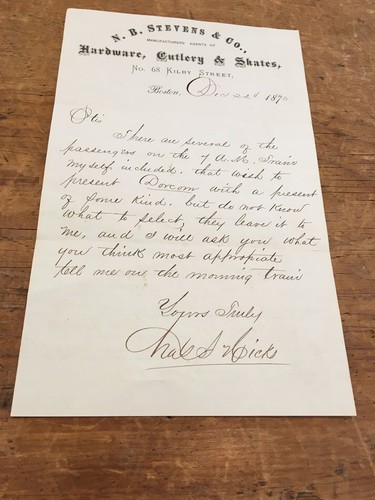 N. B. STEVENS & CO.,
MANUFACTURERS' AGENTS OF
Hardware, Cutlery & Skates,
No. 68 KILBY STREET,
Boston, Dec 22d 1870
Otis
There are several of the
passengers on the 7 A.M. Train
myself included. that wish to
present Dorcom with a present
of some kind. but do not know
what to select, they leave it to
me, and I will ask you what
you think most appropiate
tell me on the morning train
Yours Truly
Chas S Hicks